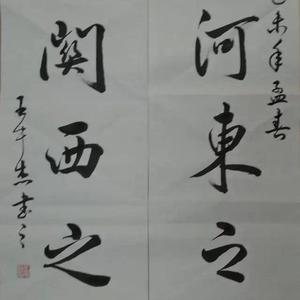 未年孟春
河東之
關西之
王午杰書之